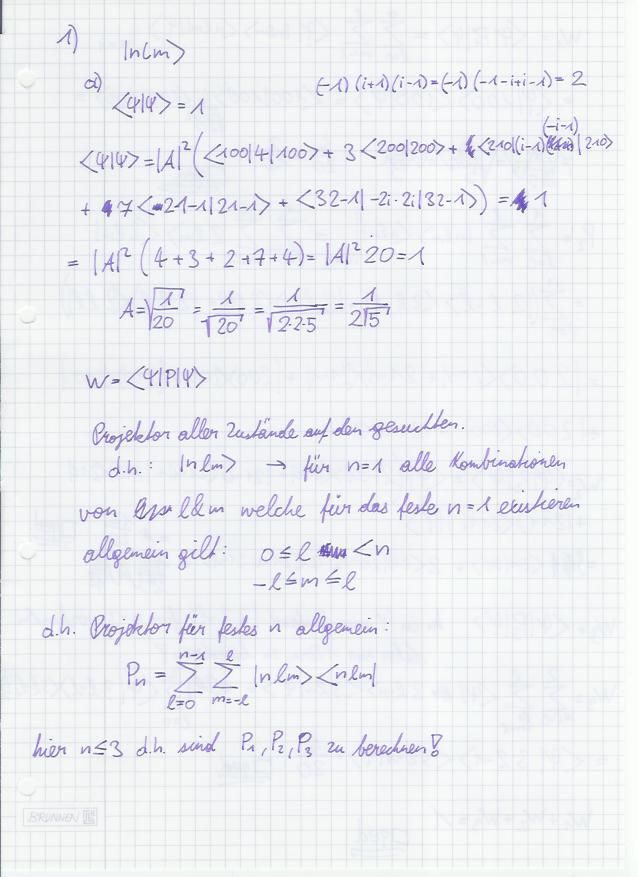 1)
|nlm>
a)
<Ψ|Ψ> = 1
(-1)(i+1)(i-1)=(-1)(-1-i+i-1)=2
<Ψ|Ψ> = |A|²(<100|4|100> + 3<200|200> + <210|(i-1)(-i-1)|210>
+ 7<21-1|21-1> + <32-1|-2i·2i|32-1>) = 1
= |A|² (4+3+2+7+4) = |A|² 20 = 1
A = √(1/20) = 1/√20 = 1/√(2·2·5) = 1/(2√5)
W = <Ψ|P|Ψ>
Projektor aller Zustände auf den gesuchten.
d.h.: |nlm> → für n=1 alle Kombinationen
von l&m welche für das feste n=1 existieren
allgemein gilt: 0≤l <n
-l≤m≤l
d.h. Projektor für festes n allgemein:
Pₙ = ∑_{l=0}^{n-1} ∑_{m=-l}^{l} |nlm><nlm|
hier n≤3 d.h. sind P₁, P₂, P₃ zu berechnen!
BRUNNEN